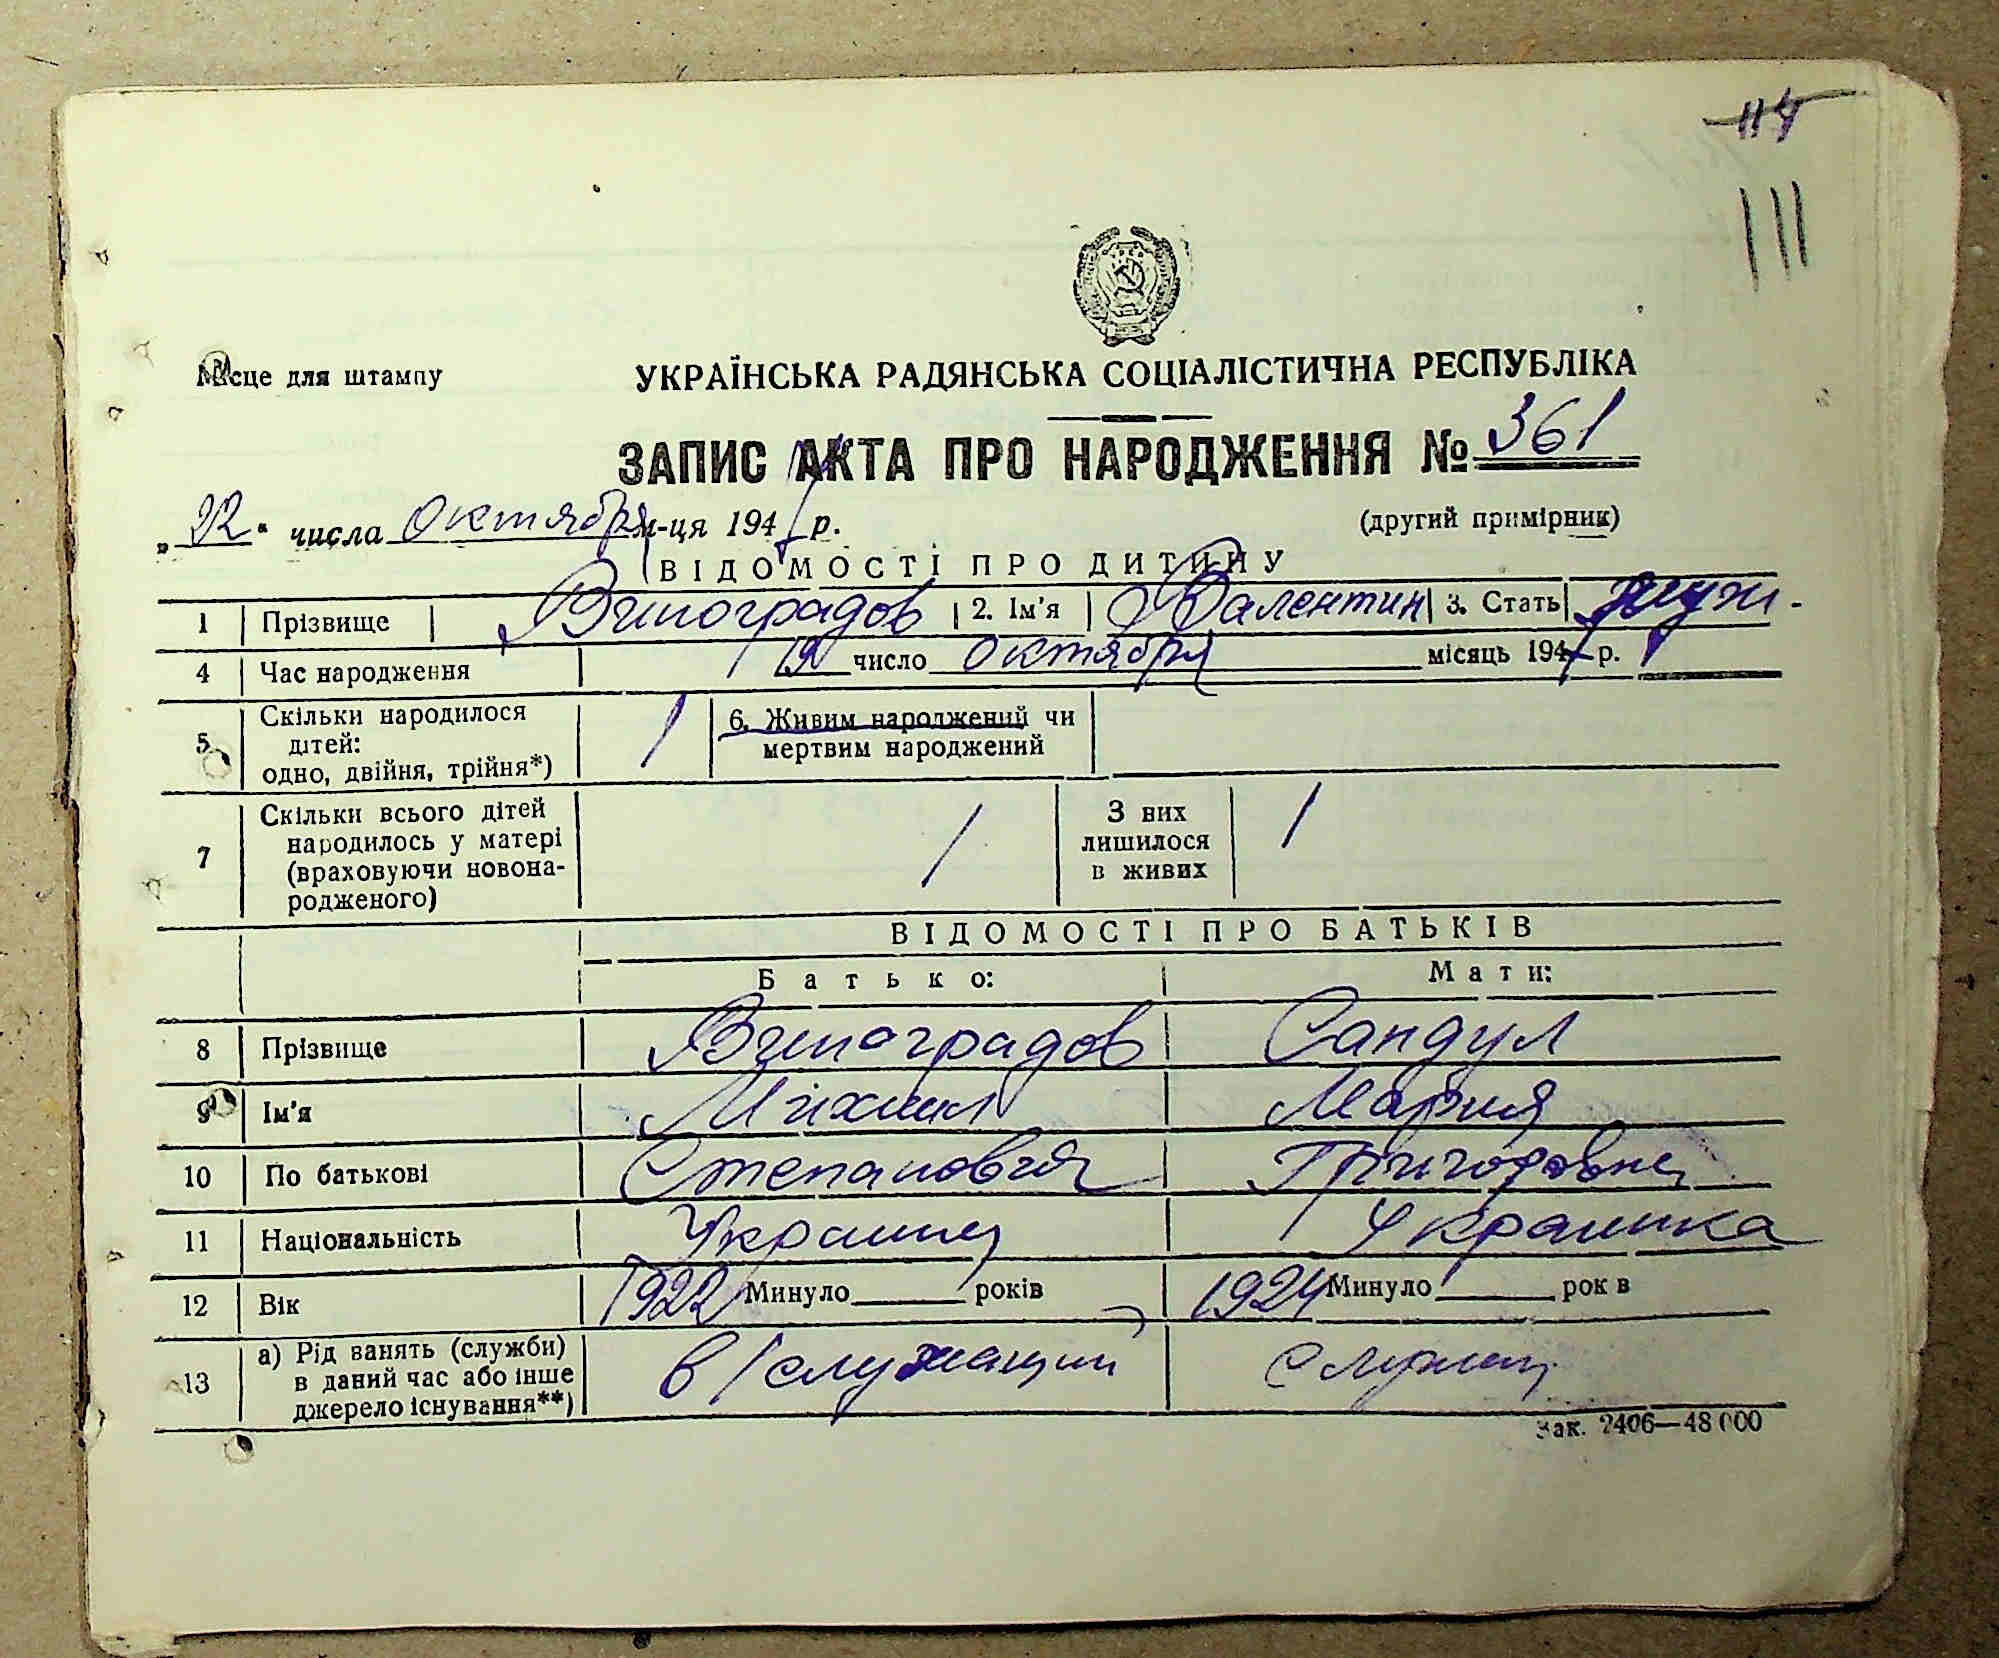 114
111
Місце для штампу
УКРАЇНСЬКА РАДЯНСЬКА СОЦІАЛІСТИЧНА РЕСПУБЛІКА
ЗАПИС АКТА ПРО НАРОДЖЕННЯ № 361
„22“ числа октября м-ця 194 р.
(другий примірник)
ВІДОМОСТІ ПРО ДИТИНУ
1 Прізвище Виноградов 2. Ім'я Валентин 3. Стать муж.
4 Час народження 19 число октября місяць 194 р.
5 Скільки народилося дітей: одно, двійня, трійня*) 1 6. Живим народжений чи мертвим народжений
7 Скільки всього дітей народилось у матері (враховуючи новонародженого) 1 З них лишилося в живих 1
ВІДОМОСТІ ПРО БАТЬКІВ
Батько: Мати:
8 Прізвище Виноградов Сандул
9 Ім'я Михаил Мария
10 По батькові Степанович Григоровна
11 Національність Украинец Украинка
12 Вік 1922 Минуло років 1924 Минуло рок в
13 а) Рід занять (служби) в даний час або інше джерело існування**) в/служащий служащ.
Зак. 2406—48 000